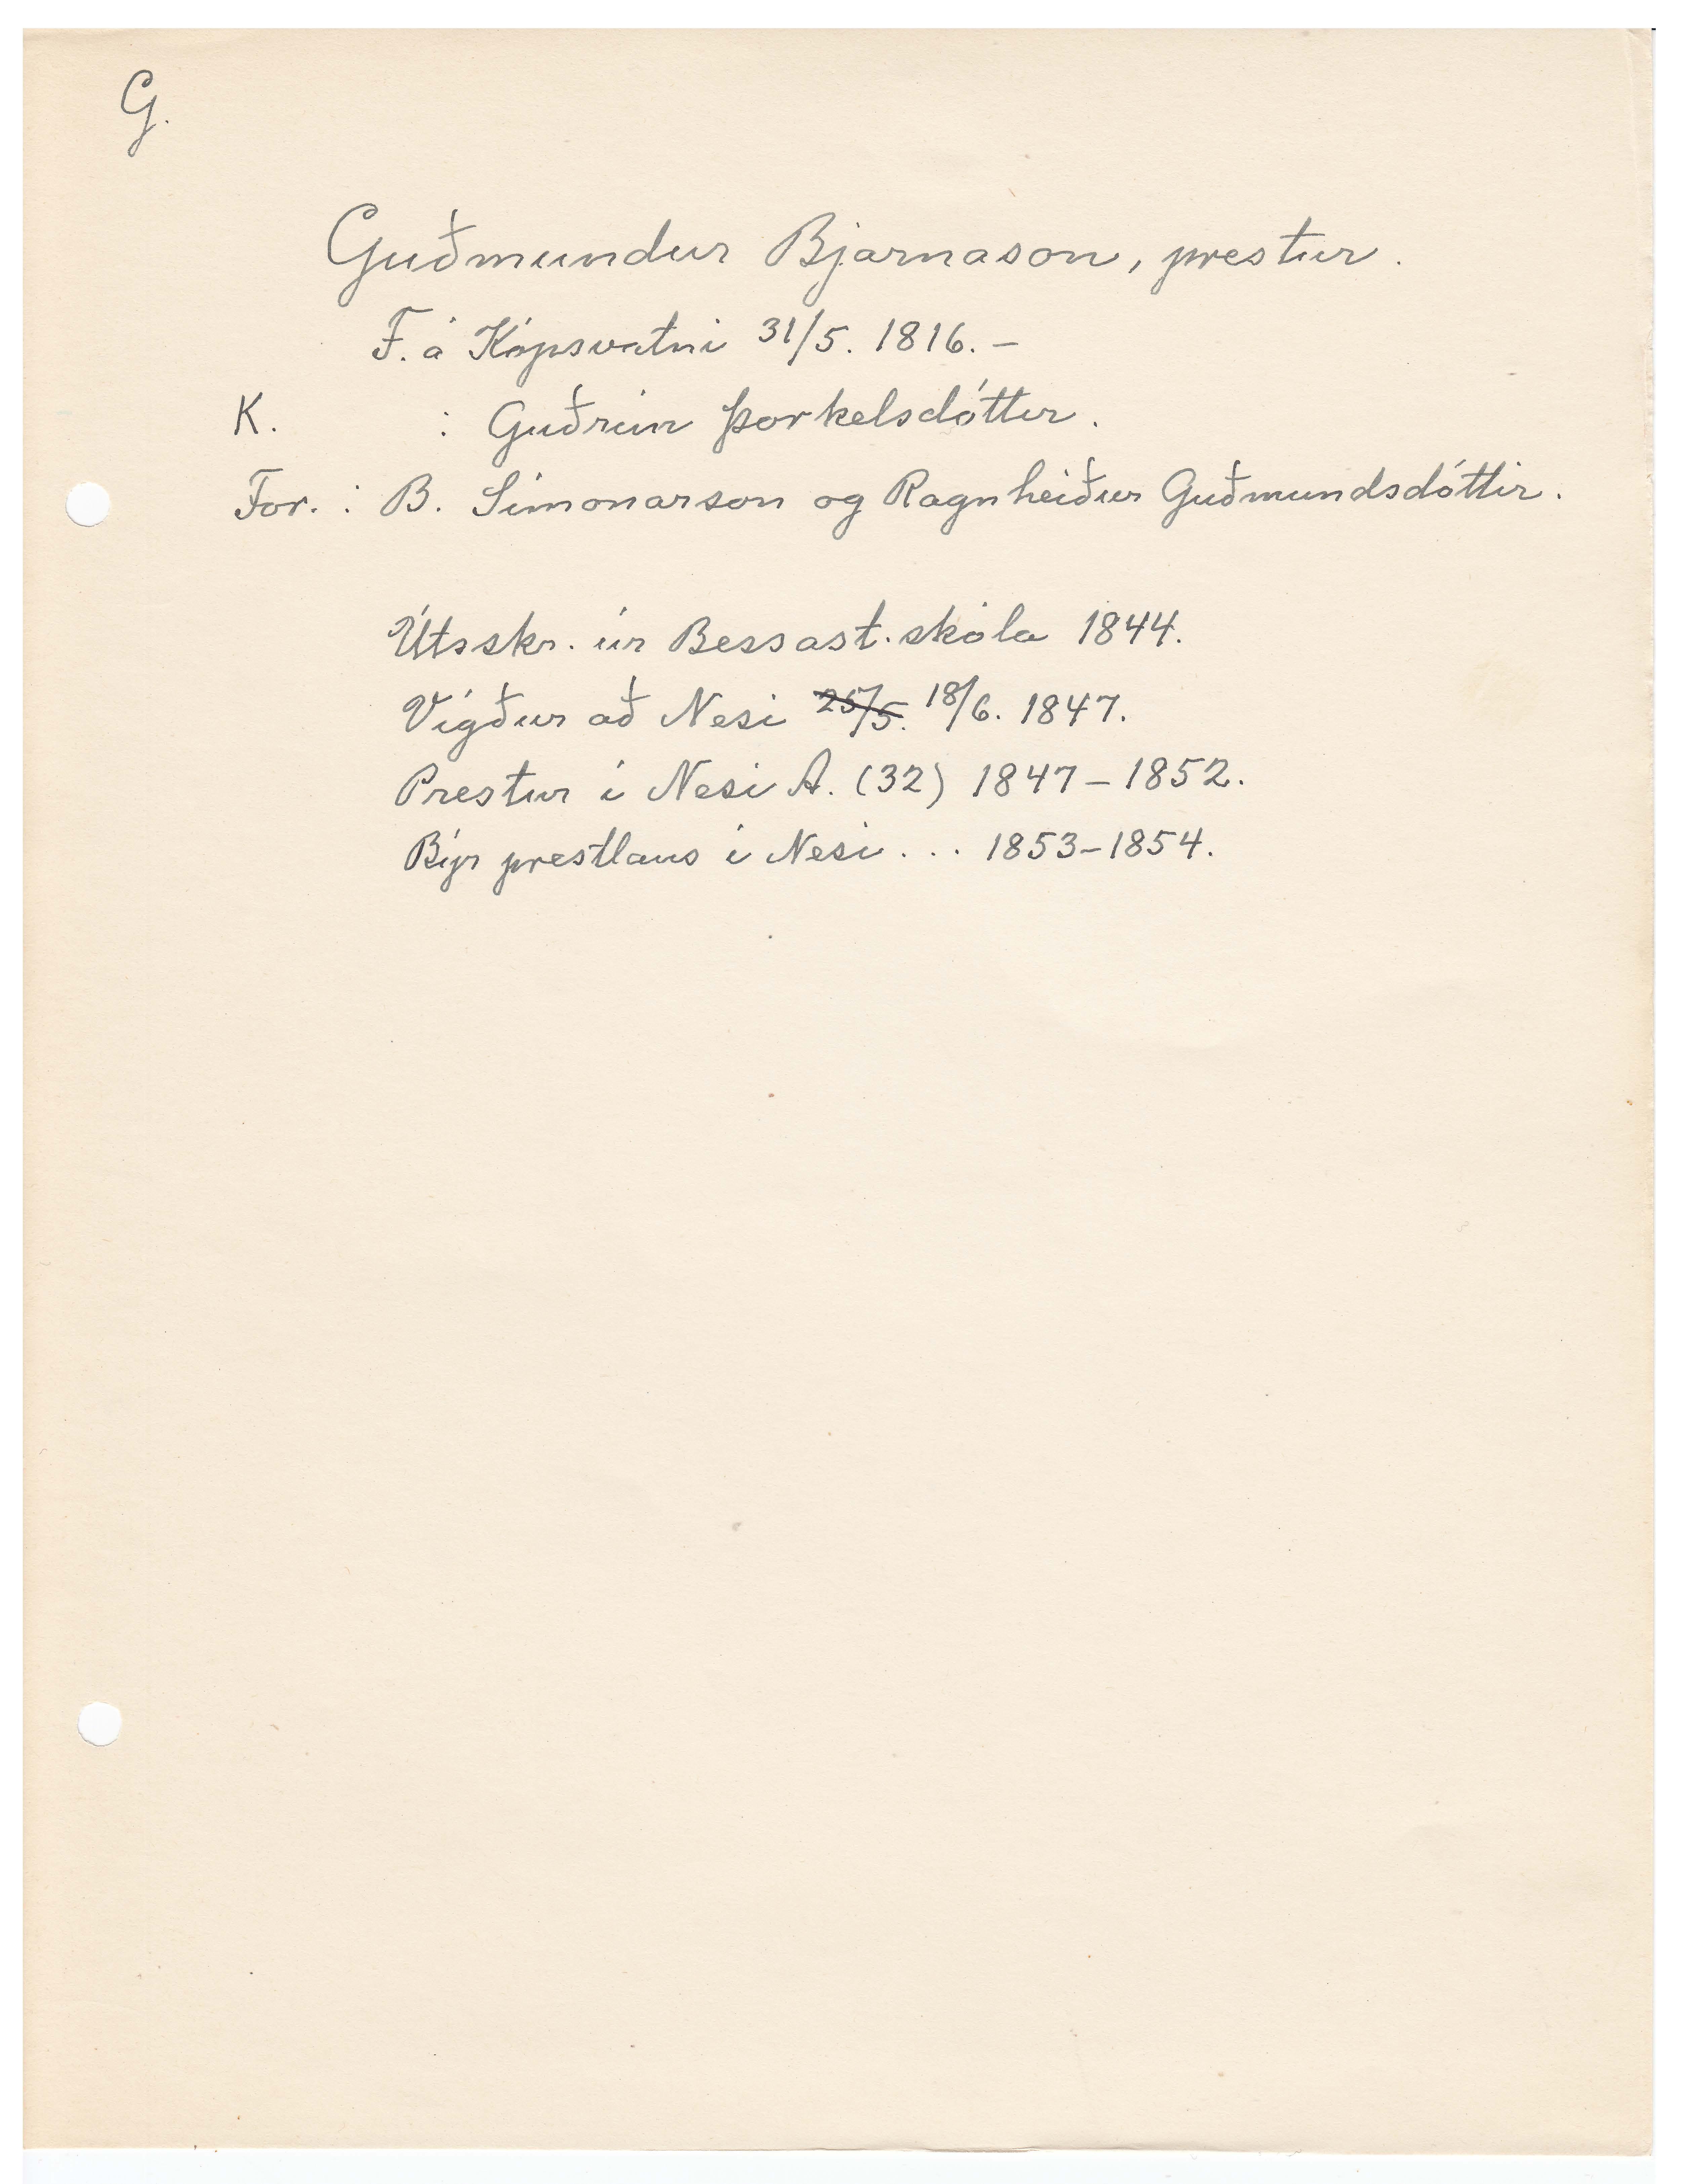 G.
Guðmundur Bjarnason, prestur.
F. á Kópsvatni 31/5. 1816. –
K. : Guðrún Þorkelsdóttir.
For. : B. Símonarson og Ragnheiður Guðmundsdóttir.
Útsskr. úr Bessast. skóla 1844.
Vígður að Nesi 25/5. 18/6. 1847.
Prestur í Nesi A. (32) 1847 – 1852.
Býr prestlaus í Nesi . . . 1853 – 1854.